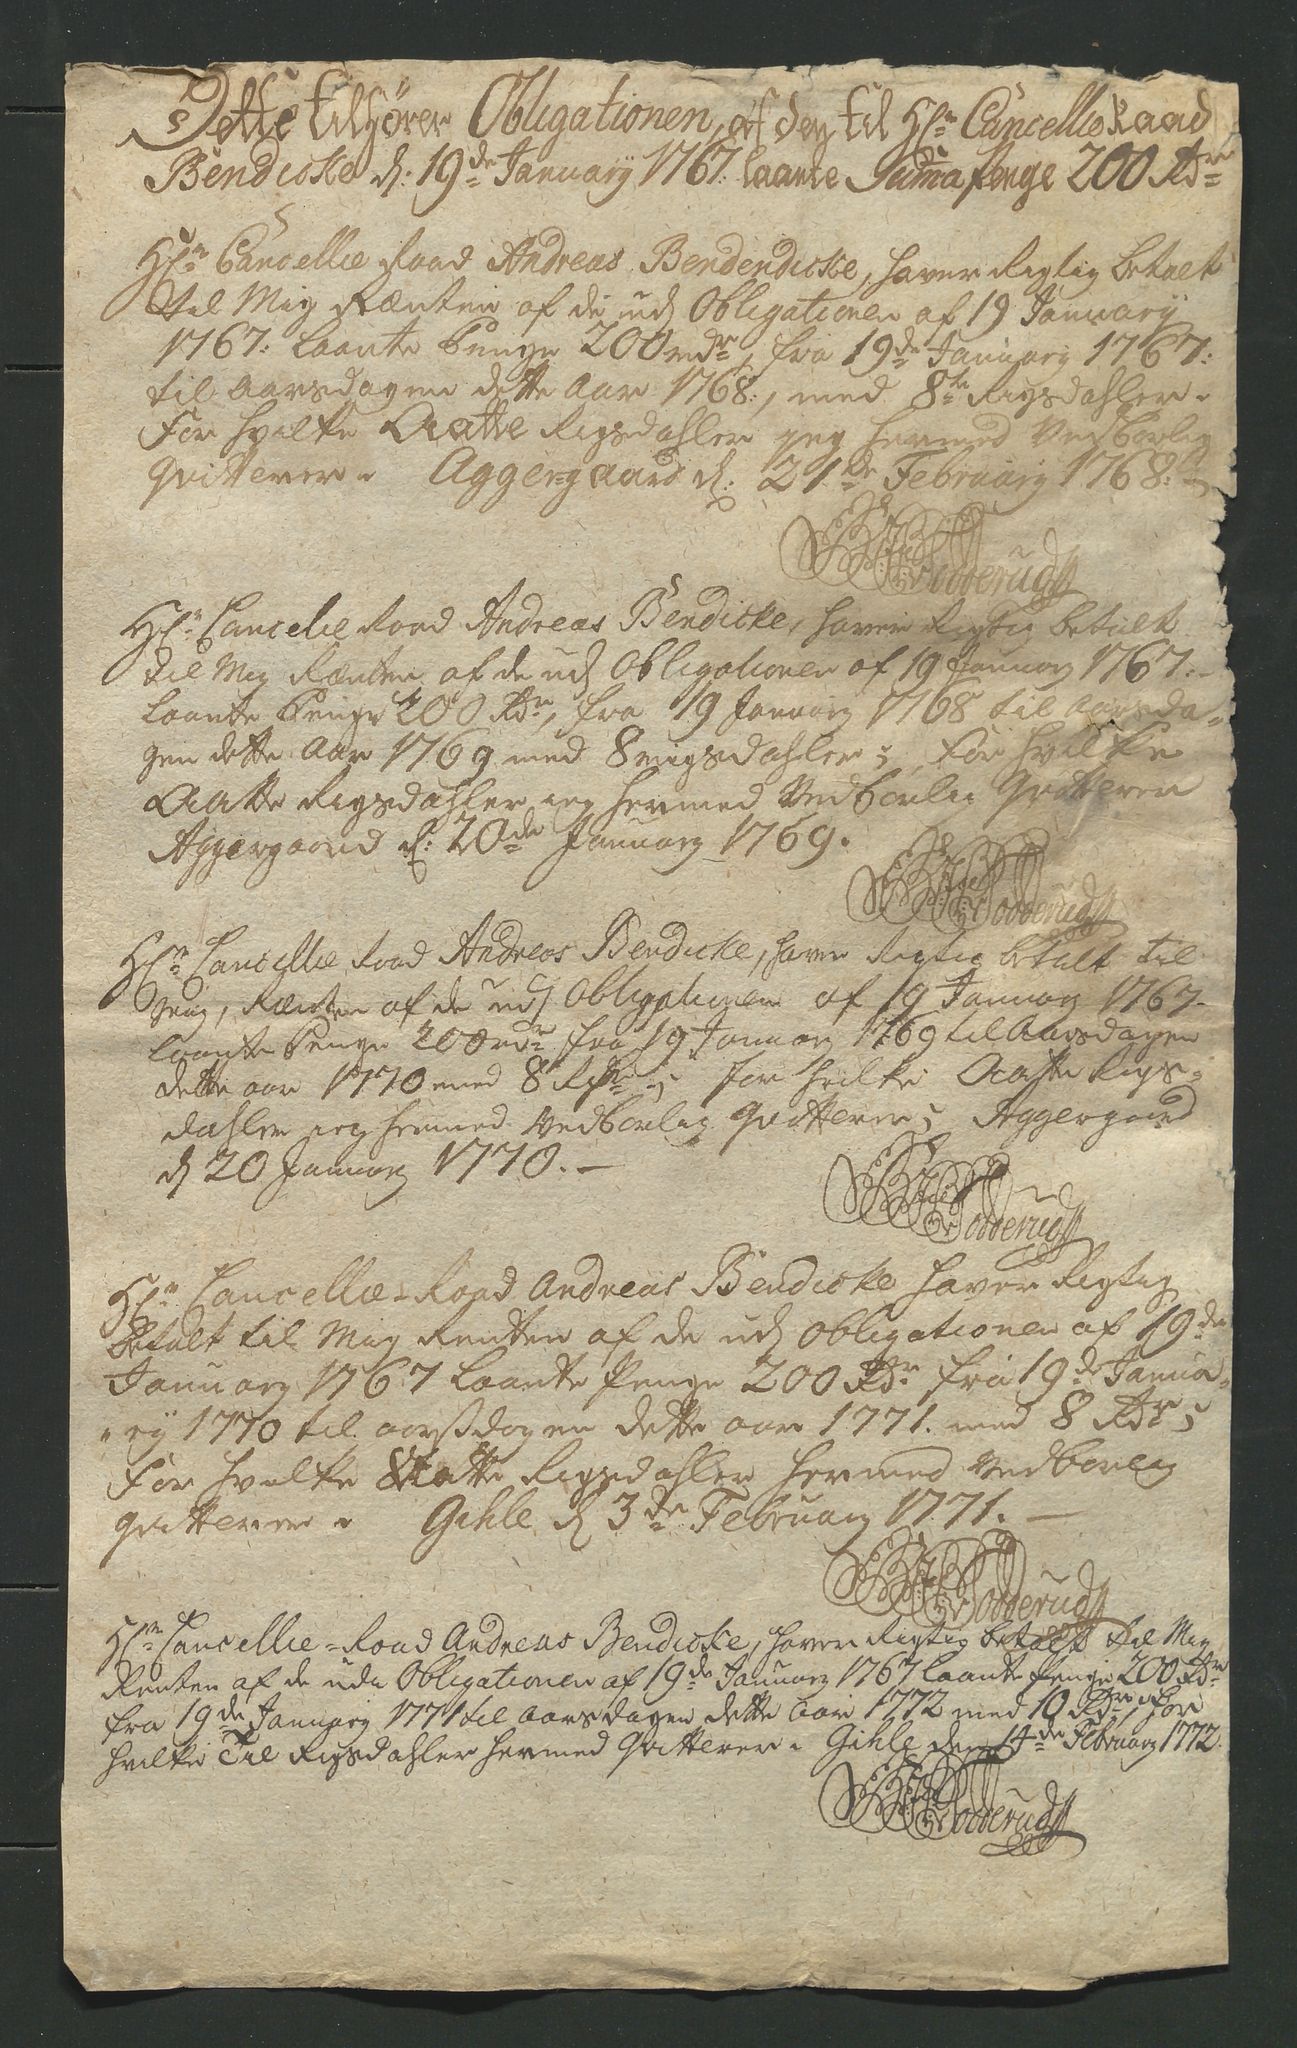 Dette tilhörer Obligationen, af den til Hr: Cancellieraad
Bendicke d: 19de Januarÿ 1767: laante Suma penge 200 Rdr
Hr: Cancellie Raad Andreas Bendendicke, haver Rigtig betalt
til Mig Rænten af de udj Obligationen af 19 Januarÿ
1767: laante Penge 200 rdr, fra 19de Januarij 1767:
til aarsdagen dette aar 1768:, med 8te Rigsdahler.
For hvilke Aatte Rigsdahler jeg hermed Vedbørlig
qvitterer. Aggergaard d: 21de Februarij 1768:
Bodderud
Hr: Cancelie Raad Andreas Bendicke, haver Rigtig betalt
til Mig Rænten af de udj Obligationen af 19 Januarij 1767:
laante Penge 200 Rdr, fra 19 Januarij 1768 til aarsda-
gen dette Aar 1769 med 8 rigsdahler; For hvilke
Aatte Rigsdahler jeg hermed Vedbørlig Qvitterer
Aggergaard d: 20de Januarij 1769.
Bodderud
Hr: Cancellie Raad Andreas Bendicke, haver Rigtig betalt til
mig, Rænten af de udj Obligationen af 19 Januarij 1767-
laante Penge 200 rdr fra 19 Januarij 1769 til Aarsdagen
dette aar 1770 med 8 Rdr; for hvilke Aatte Rigs-
dahler jeg hermed Vedbørlig Qvitterer; Aggergaard
d 20 Januarij 1770.-
Bodderud
Hr: Cancellie-Raad Andreas Bendicke haver Rigtig
betalt til Mig Rentten af de udj Obligationen af 19de
Januarij 1767 laante Penge 200 Rdr fra 19de Janua-
-rij 1770 til aarsdagen dette aar 1771. med 8 Rdr;
For hvilke Aatte Rigsdahler hermed Vedbørlig
qvitterer. Gihle d 3de Februarij 1771.-
Bodderud
Hr: Cancellie-Raad Andreas Bendicke, haver Rigtig betalt til Mig
Renten af de udi Obligationen af 19de Januarij 1767 laante Penge 200 Rdr
fra 19de Januarij 1771 til aarsdagen dette aar 1772 med 10 Rdr, for
hvilke Tie Rigsdahler hermed Qvitterer. Gihle den 14de Februarij 1772.
Bodderud